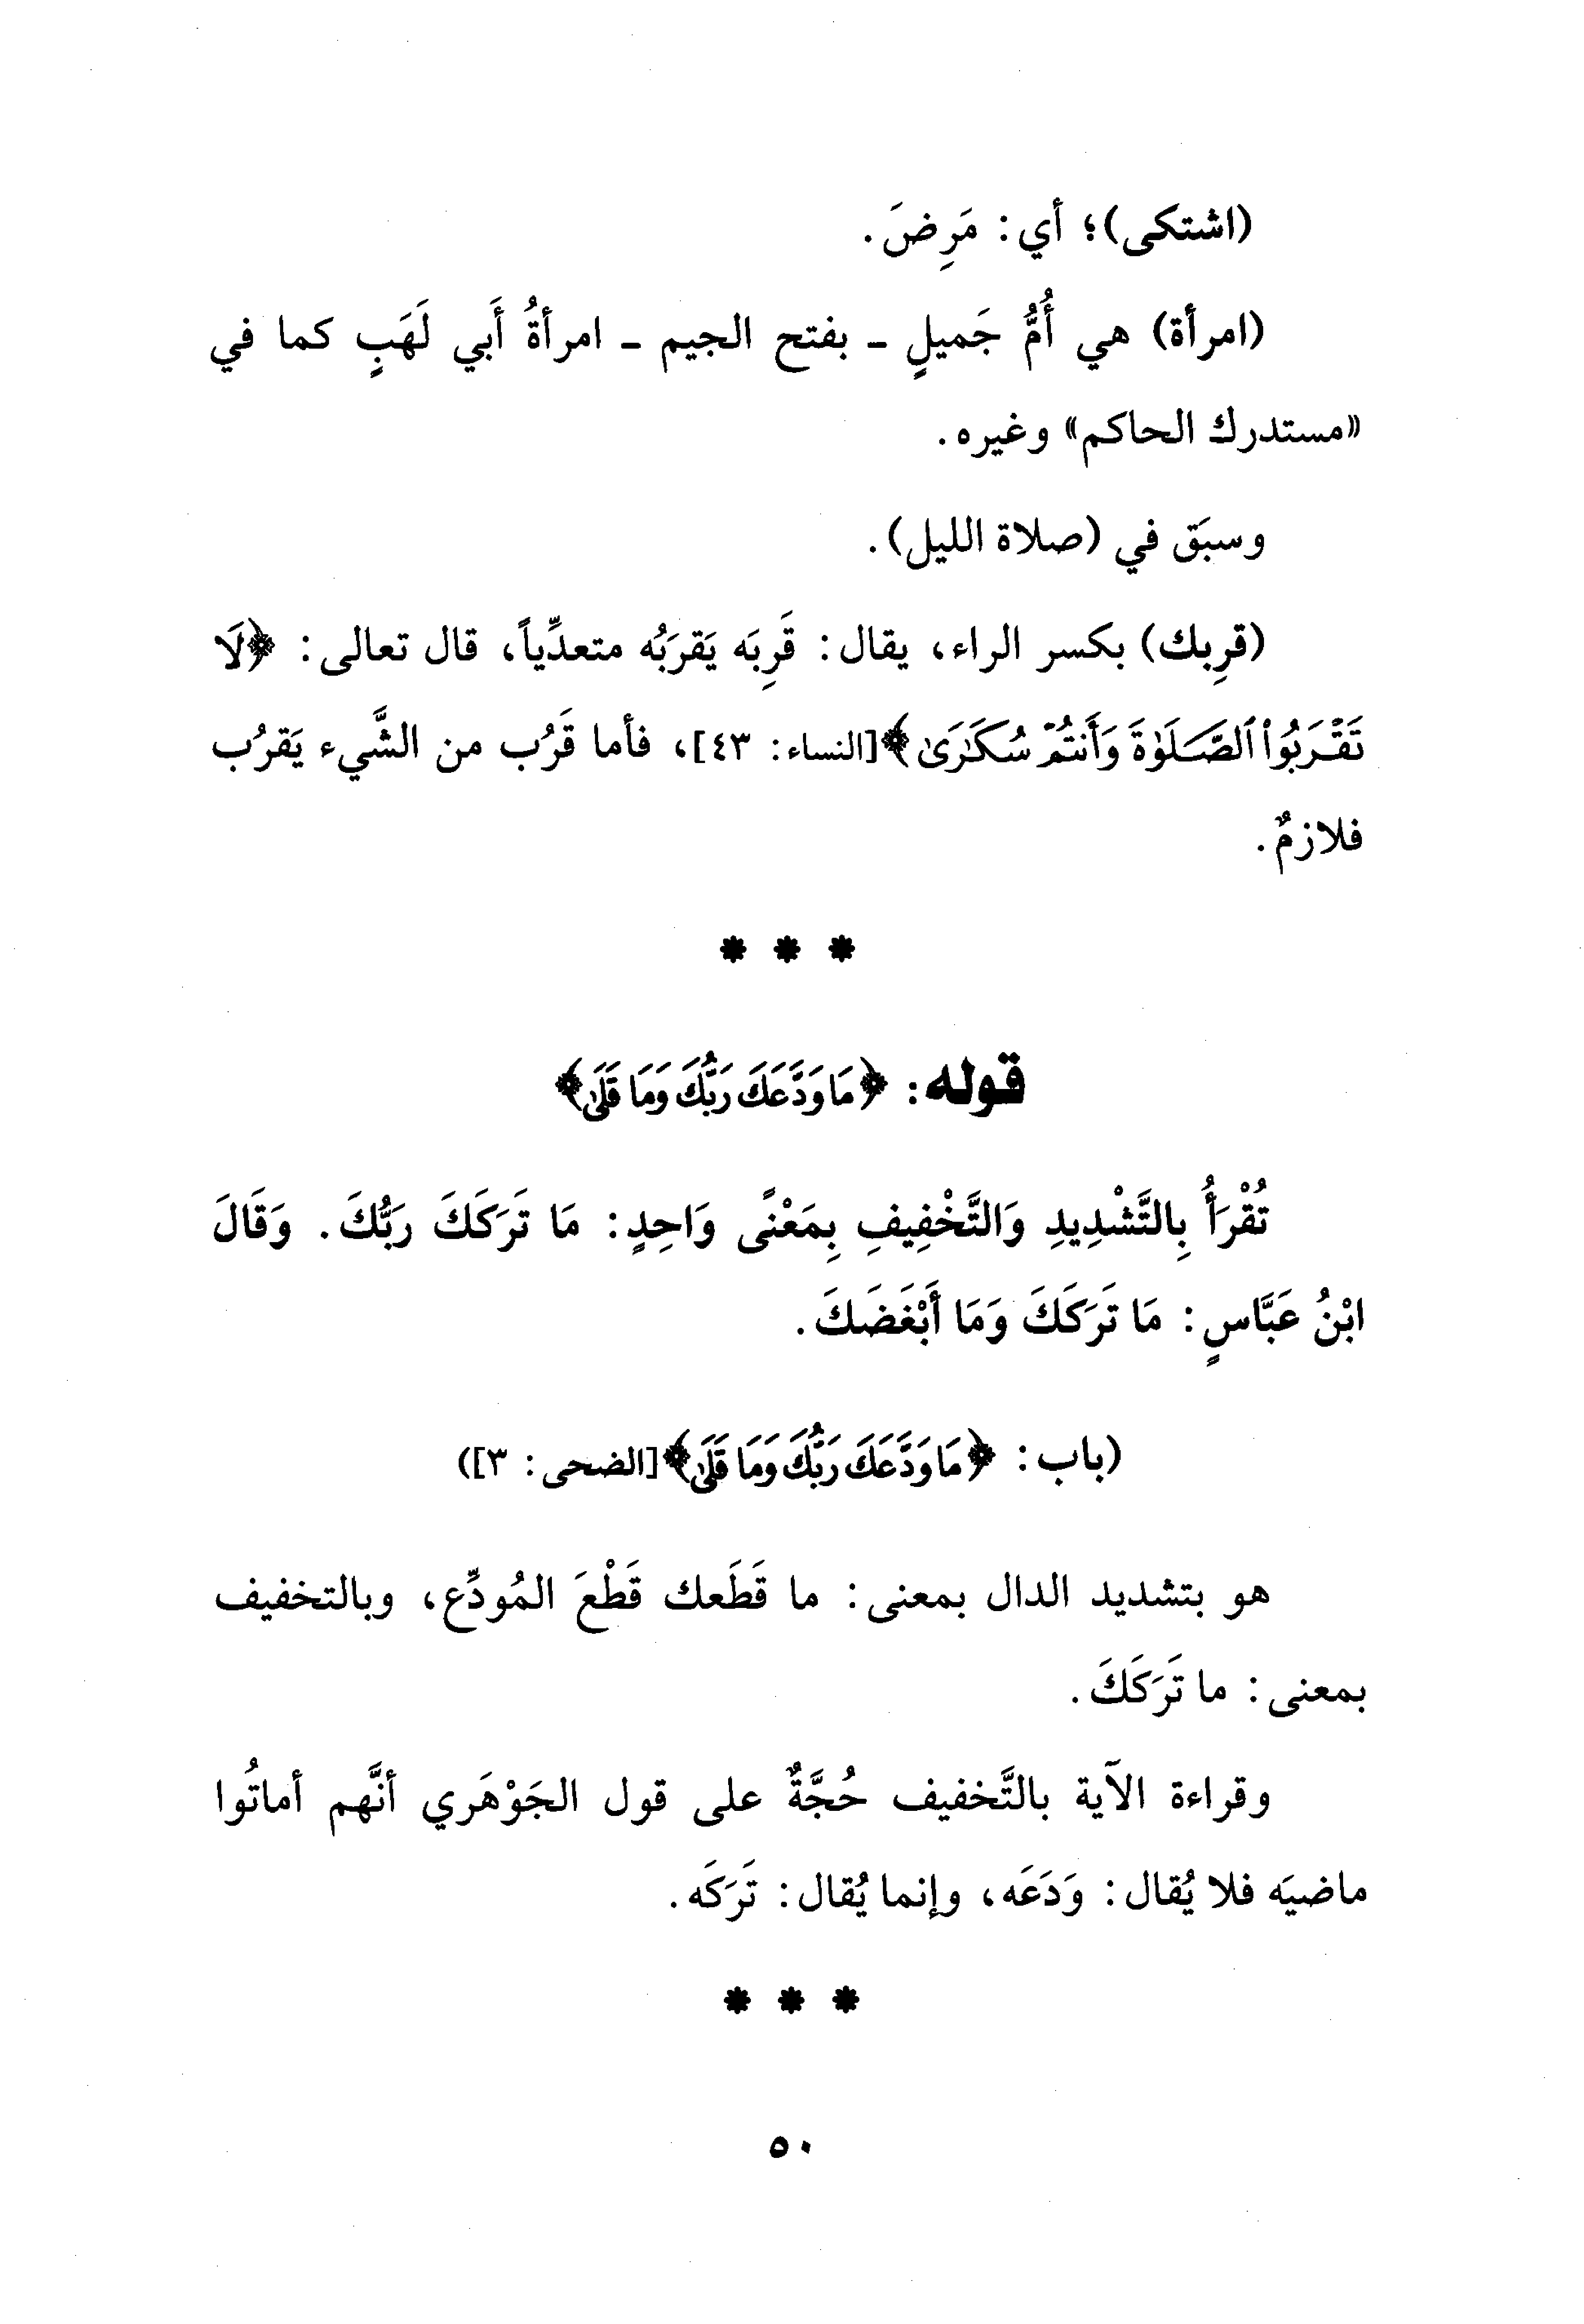 (اشتكى)؛ أي: مَرِضَ.
(امرأة) هي أُمُّ جَميلٍ - بفتح الجيم - امرأةُ أَبي لَهَبٍ كما في
«مستدرك الحاكم» وغيره.
وسبَق في (صلاة الليل).
(قرِبك) بكسر الراء، يقال: قَرِبَه يَقرَبُه متعدِّياً، قال تعالى: ﴿لَا
تَقْرَبُوا۟ ٱلصَّلَوٰةَ وَأَنتُمْ سُكَـٰرَىٰ﴾[النساء: ٤٣]، فأما قَرُب من الشَّيء يَقرُب
فلازمٌ.
* * *
قوله: ﴿مَا وَدَّعَكَ رَبُّكَ وَمَا قَلَىٰ﴾
تُقْرَأُ بِالتَّشْدِيدِ وَالتَّخْفِيفِ بِمَعْنًى وَاحِدٍ: مَا تَرَكَكَ رَبُّكَ. وَقَالَ
ابْنُ عَبَّاسٍ: مَا تَرَكَكَ وَمَا أَبْغَضَكَ.
(باب: ﴿مَا وَدَّعَكَ رَبُّكَ وَمَا قَلَىٰ﴾[الضحى: ٣])
هو بتشديد الدال بمعنى: ما قَطَعك قَطْعَ المُودِّع، وبالتخفيف
بمعنى: ما تَرَكَكَ.
وقراءة الآية بالتَّخفيف حُجَّةٌ على قول الجَوْهَري أنَّهم أماتُوا
ماضيَه فلا يُقال: وَدَعَه، وإنما يُقال: تَرَكَه.
* * *
٥٠